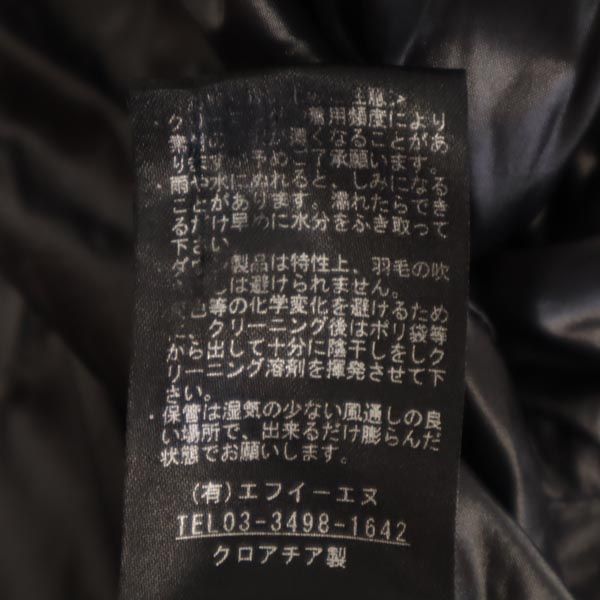 注意>
着用頻度により
薄くなることがあ
す。予めご了承願います。
雨や水にぬれると、しみになる
ことがあります。濡れたらできて
るだけ早めに水分をふき取って
下さい
ダウン製品は特性上、羽毛の吹
しは避けられません。
色等の化学変化を避けるため
クリーニング後はポリ袋等
から出して十分に陰干しをしク
リーニング溶剤を揮発させて下
さい。
・保管は湿気の少ない風通しの良
い場所で、出来るだけ膨らんだ
状態でお願いします。
(有)エフイーエヌ
TEL03-3498-1642
クロアチア製